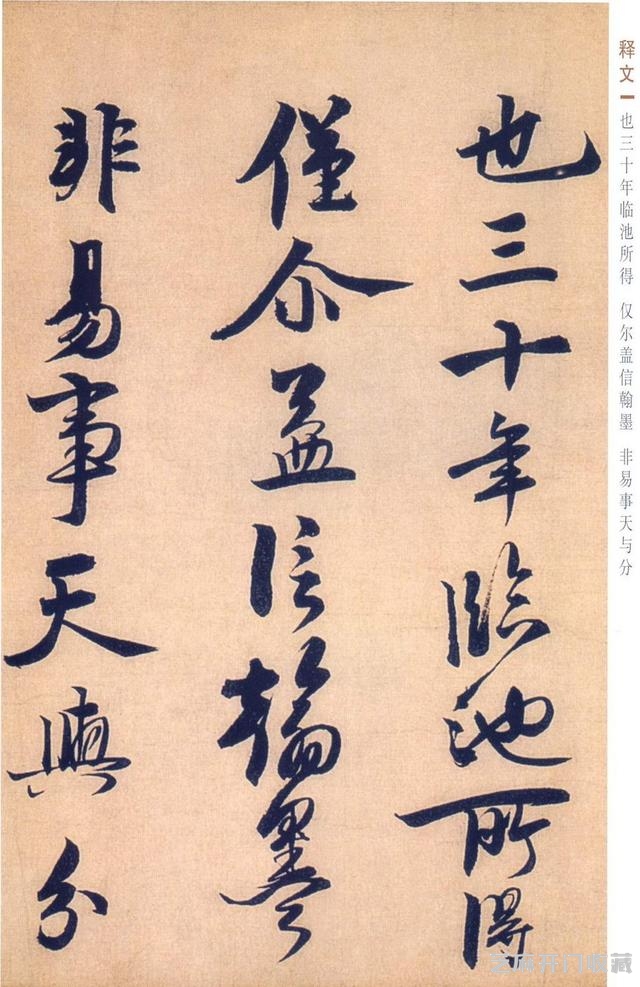 也三十年臨池所得
僅尒盖信翰墨
非易事天與分
释文
也三十年临池所得 仅尔盖信翰墨 非易事天与分